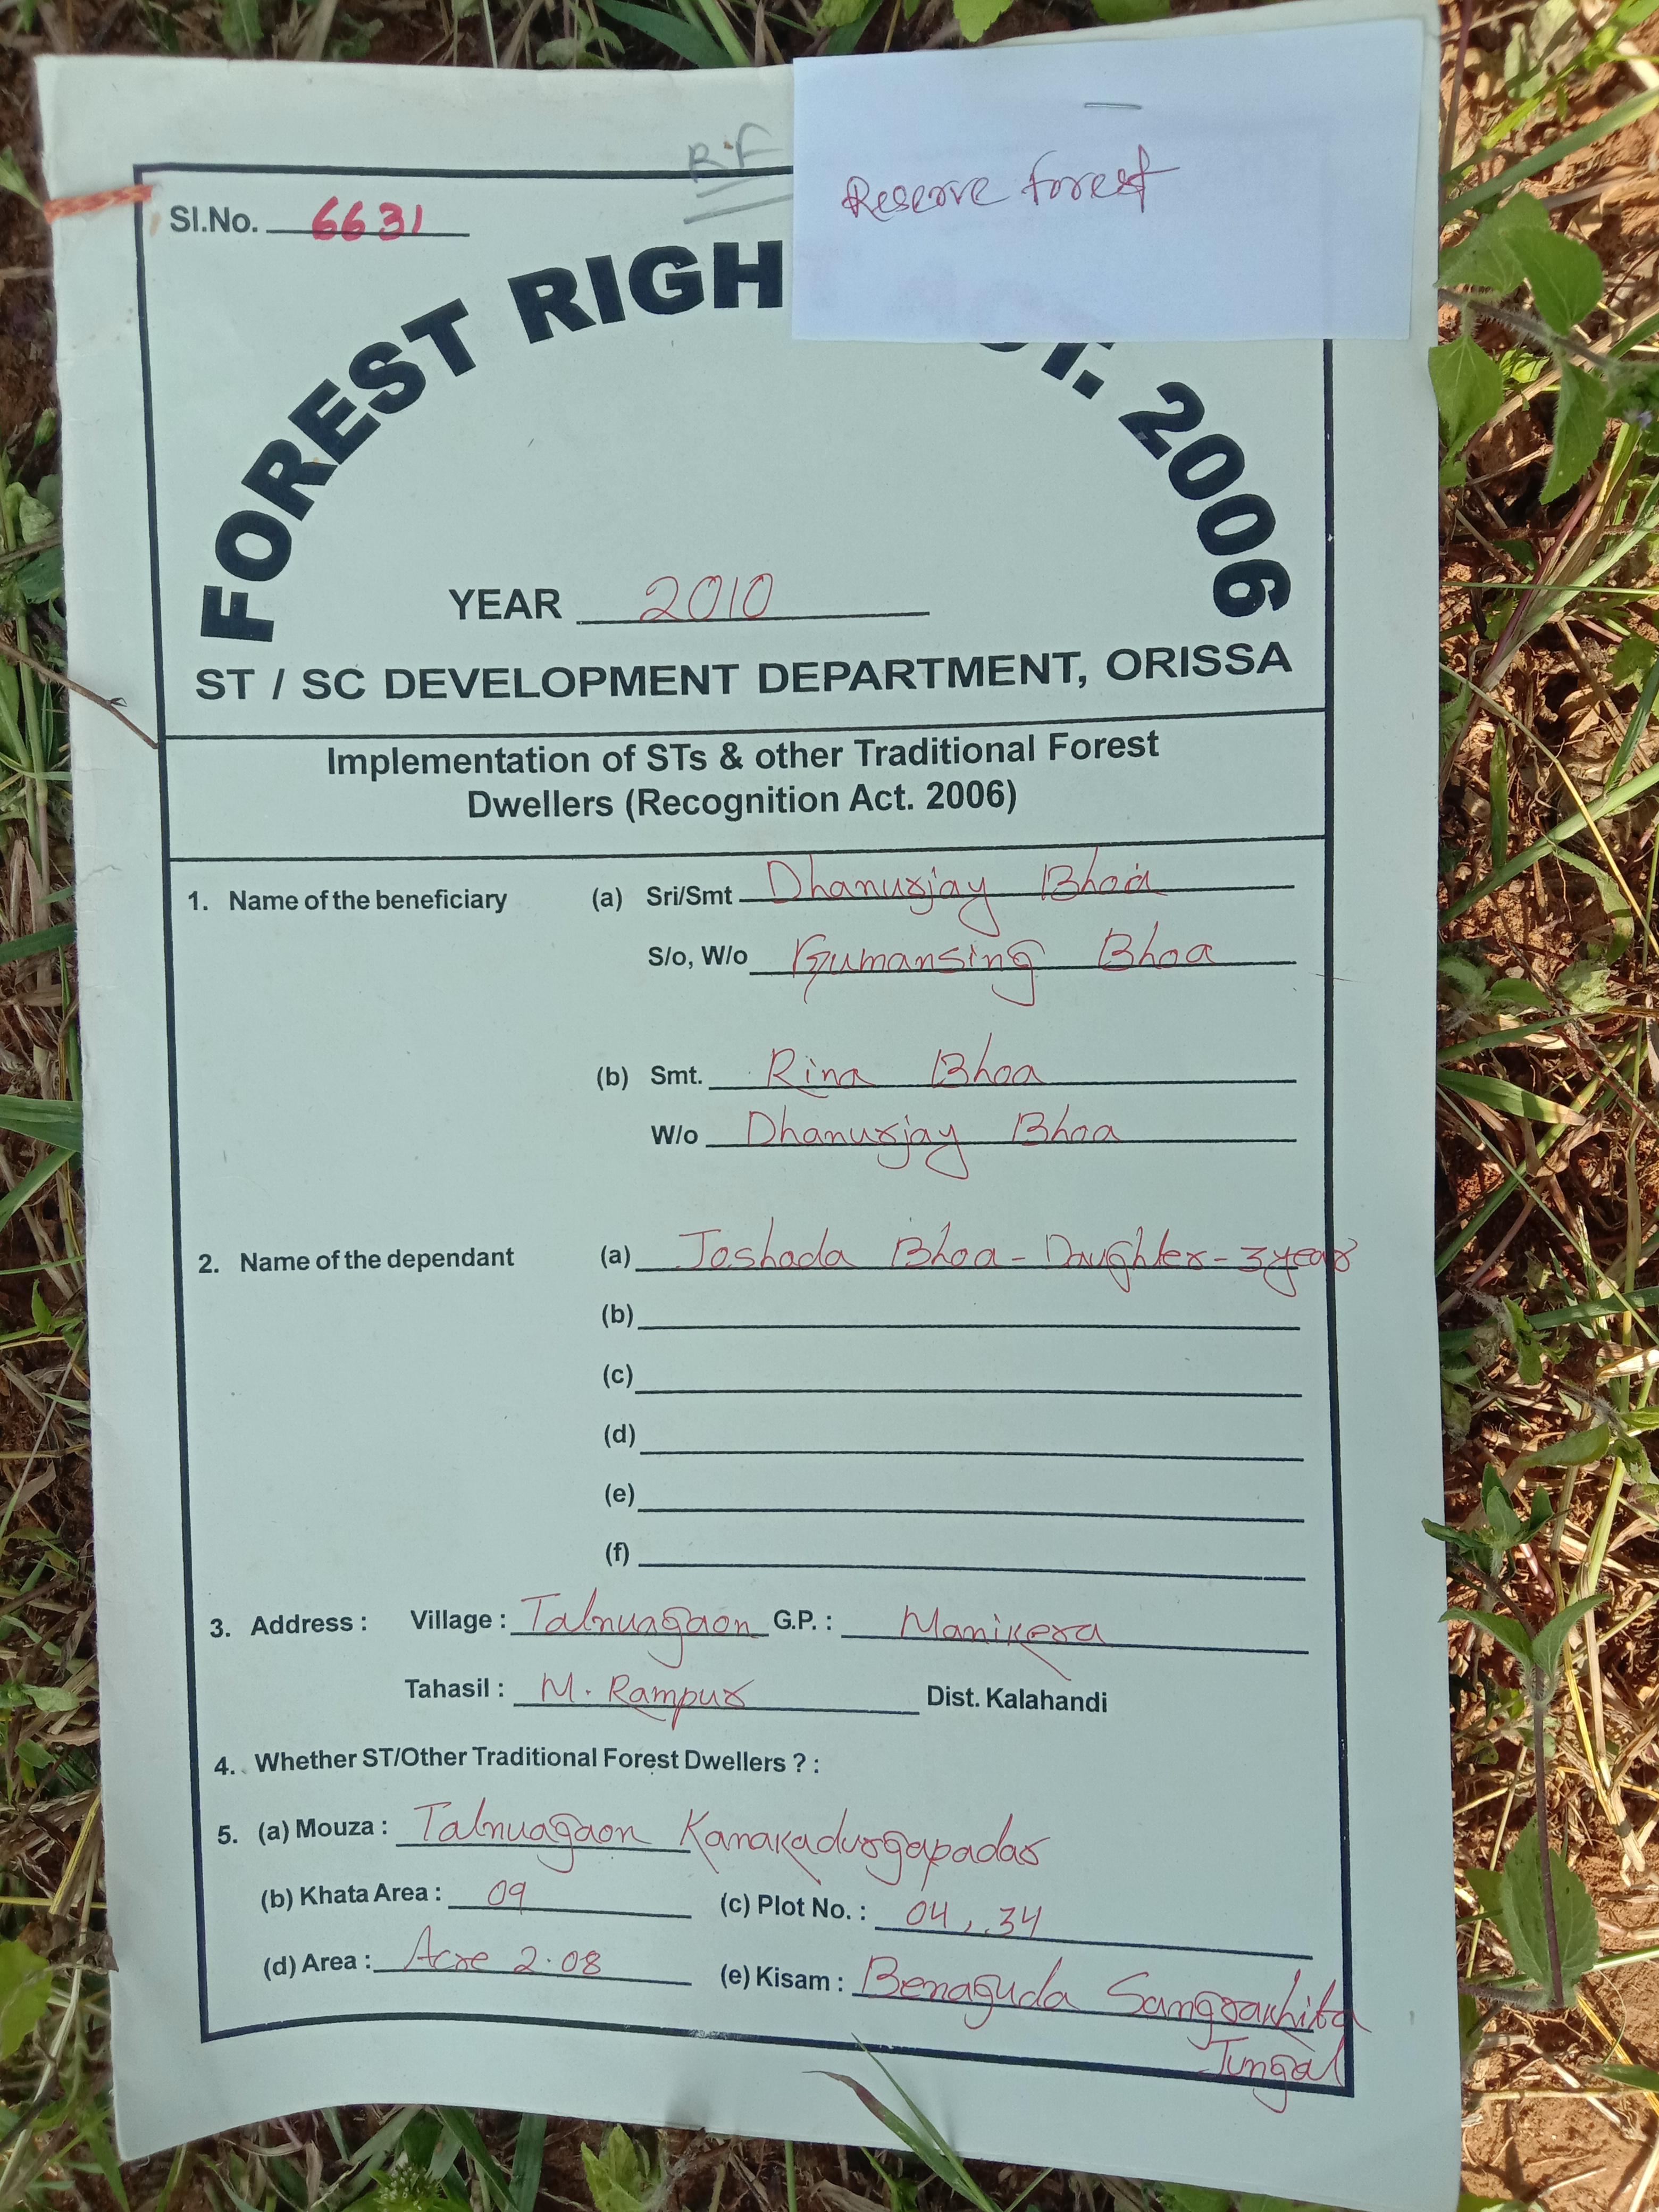 R.F
Reserve forest
Sl.No. 6631
FOREST RIGH T. 2006
YEAR 2010
ST / SC DEVELOPMENT DEPARTMENT, ORISSA
Implementation of STs & other Traditional Forest
Dwellers (Recognition Act. 2006)
1. Name of the beneficiary (a) Sri/Smt Dhanurjay Bhoa
S/o, W/o Gumansing Bhoa
(b) Smt. Rina Bhoa
W/o Dhanurjay Bhoa
2. Name of the dependant (a) Joshada Bhoa - Daughter - 3 year
(b)
(c)
(d)
(e)
(f)
3. Address : Village : Talnuagaon G.P. : Manikera
Tahasil : M. Rampur Dist. Kalahandi
4. Whether ST/Other Traditional Forest Dwellers ? :
5. (a) Mouza : Talnuagaon Kanakadurgapadar
(b) Khata Area : 09 (c) Plot No. : 04, 34
(d) Area : Acre 2.08 (e) Kisam : Benaguda Sangrakhita
Jungal